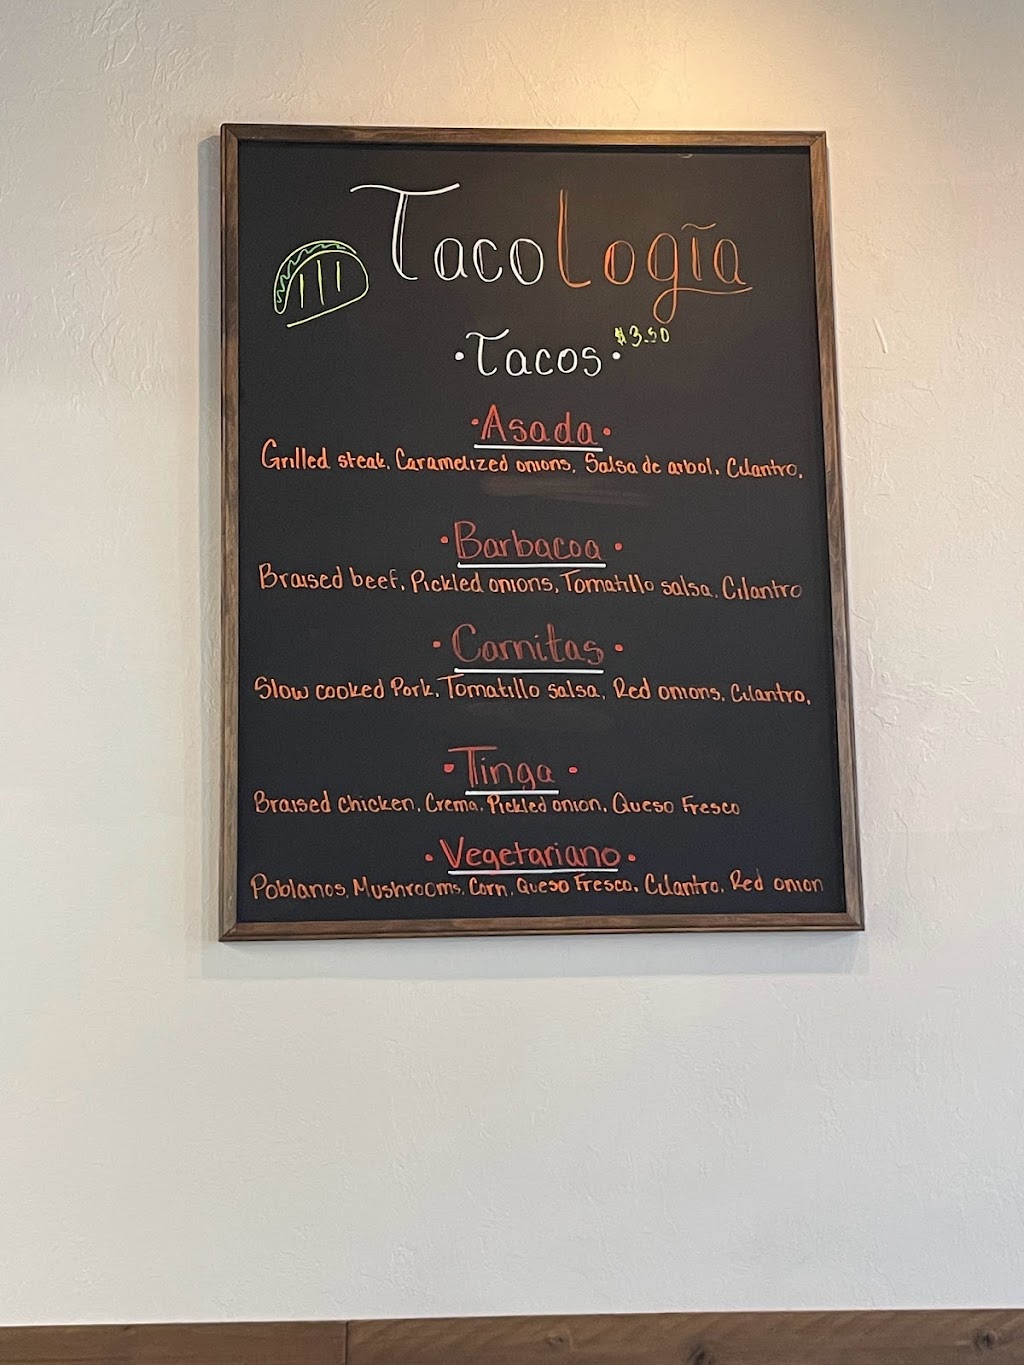 TacoLogía
·Tacos· $3.50
·Asada·
Grilled steak, Caramelized onions, Salsa de arbol, Cilantro.
·Barbacoa·
Braised beef, Pickled onions, Tomatillo salsa, Cilantro
·Carnitas·
Slow cooked Pork, Tomatillo salsa, Red onions, Cilantro.
·Tinga·
Braised chicken, Crema, Pickled onion, Queso Fresco
·Vegetariano·
Poblanos, Mushrooms, Corn, Queso Fresco, Cilantro, Red onion